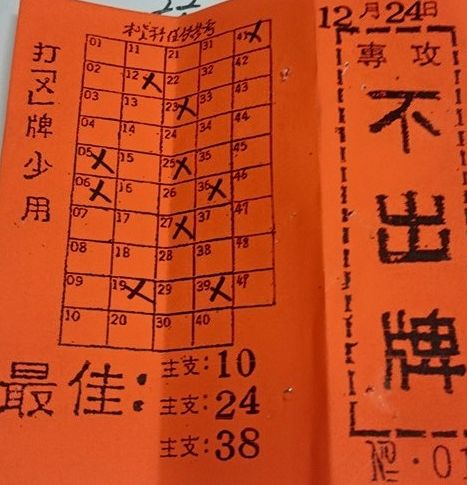 12月24日
專攻
不出牌
№.01
打「X」牌少用
01 11 21 31 41
02 12 22 32 42
03 13 23 33 43
04 14 24 34 44
05 15 25 35 45
06 16 26 36 46
07 17 27 37 47
08 18 28 38 48
09 19 29 39 49
10 20 30 40
最佳:
主支:10
主支:24
主支:38